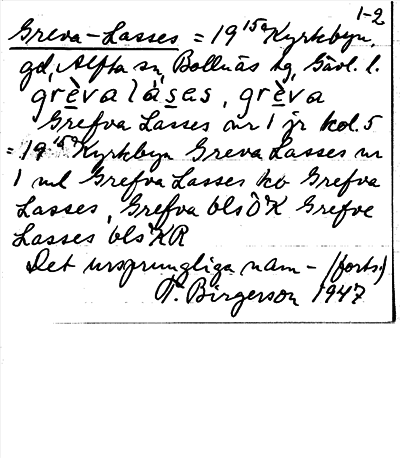 1-2
Greva-Lasses = 19 15a Kyrkbyn,
gd, Alfta sn, Bollnäs tg, Gävl. l.
grèva lásas, grèva
Grefva Lasses nr 1 jr kol. 5
= 19 15a Kyrkbyn Greva Lasses nr
1 ml Grefva Lasses ko Grefva
Lasses, Grefva bls ÖK Grefve
Lasses bls KR
Det ursprungliga nam- (forts.)
T. Birgerson 1947